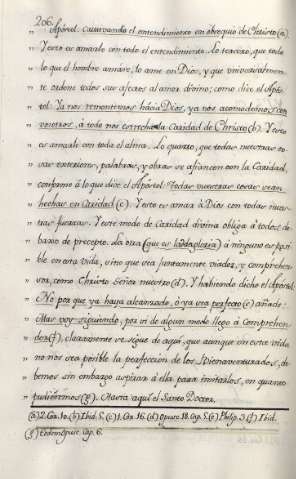 206.
" Apóstol: cautivando el entendimiento en obsequio de Christo (a).
" Y esto es amarle con todo el entendimiento. Lo tercero, que todo
" lo que el hombre amáre, lo ame en Dios, y que universalmen-
" te ordene todos sus afectos al amor divino; como dice el Após-
" tol: Ya nos remontemos hácia Dios, ya nos acomodemos con
" vosotros, á todo nos estrecha la Caridad de Christo (b). Y esto
" es amarle con toda el alma. Lo quarto, que todas nuestras co-
" sas exteriores, palabras, y obras se afiancen con la Caridad,
" conforme á lo que dice el Apóstol: Todas vuestras cosas sean
" hechas en Caridad (c). Y esto es amar á Dios con todas nues-
" tras fuerzas. Y este modo de Caridad divina obliga á todos de-
" baxo de precepto. La otra (que es la de la gloria) á ninguno es posi-
" ble en esta vida, sino que sea juntamente viador, y comprehen-
" sor, como Christo Señor nuestro (d). Y habiendo dicho el Apóstol:
" No por que ya haya alcanzado, ó ya sea perfecto (e) añade:
" Mas voy siguiendo, por si de algun modo llego á comprehen-
" der (f), claramente se sigue de aquí, que aunque en esta vida
" no nos sea posible la perfeccion de los Bienaventurados, de-
" bemos sin embargo aspirar á ella para imitarlos, en quanto
" pudiéremos (g). Hasta aquí el Santo Doctor.
(a) 2. Cor. 10. (b) Ibid. 5. (c) 1. Cor. 16. (d) Opusc. 18. Cap. 5. (e) Philip. 3. (f) Ibid.
(g) Eodem Opusc. Cap. 6.